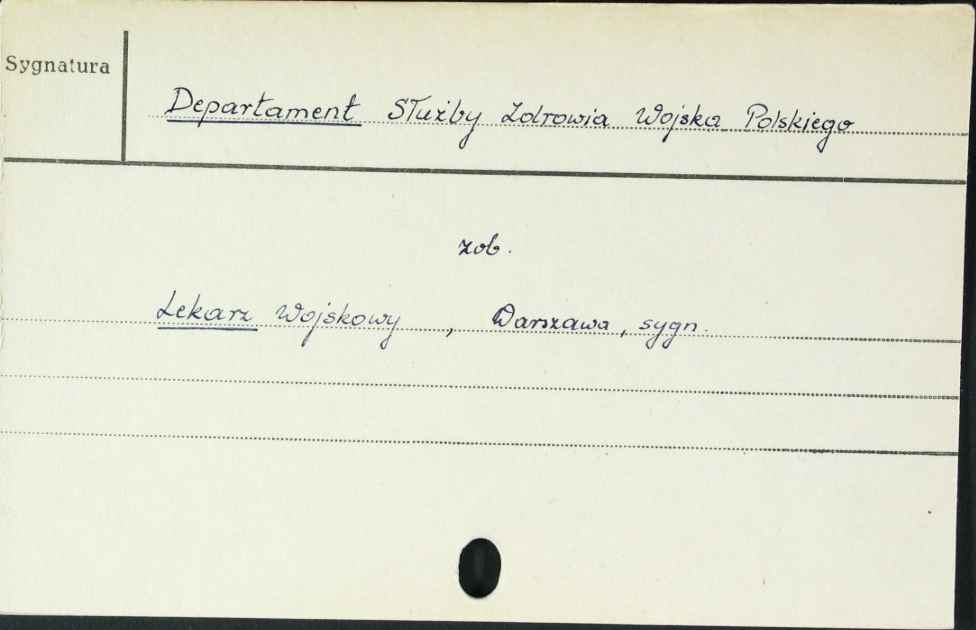 Sygnatura
Departament Służby Zdrowia Wojska Polskiego
zob.
Lekarz Wojskowy , Warszawa, sygn.